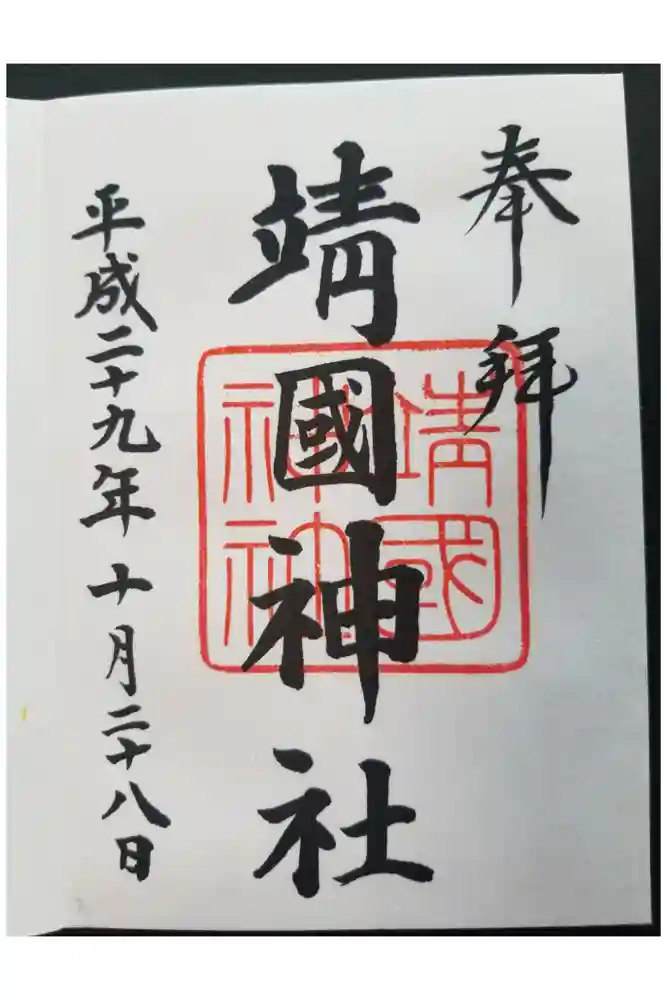 奉拝
靖國神社
靖國
神社
平成二十九年十月二十八日